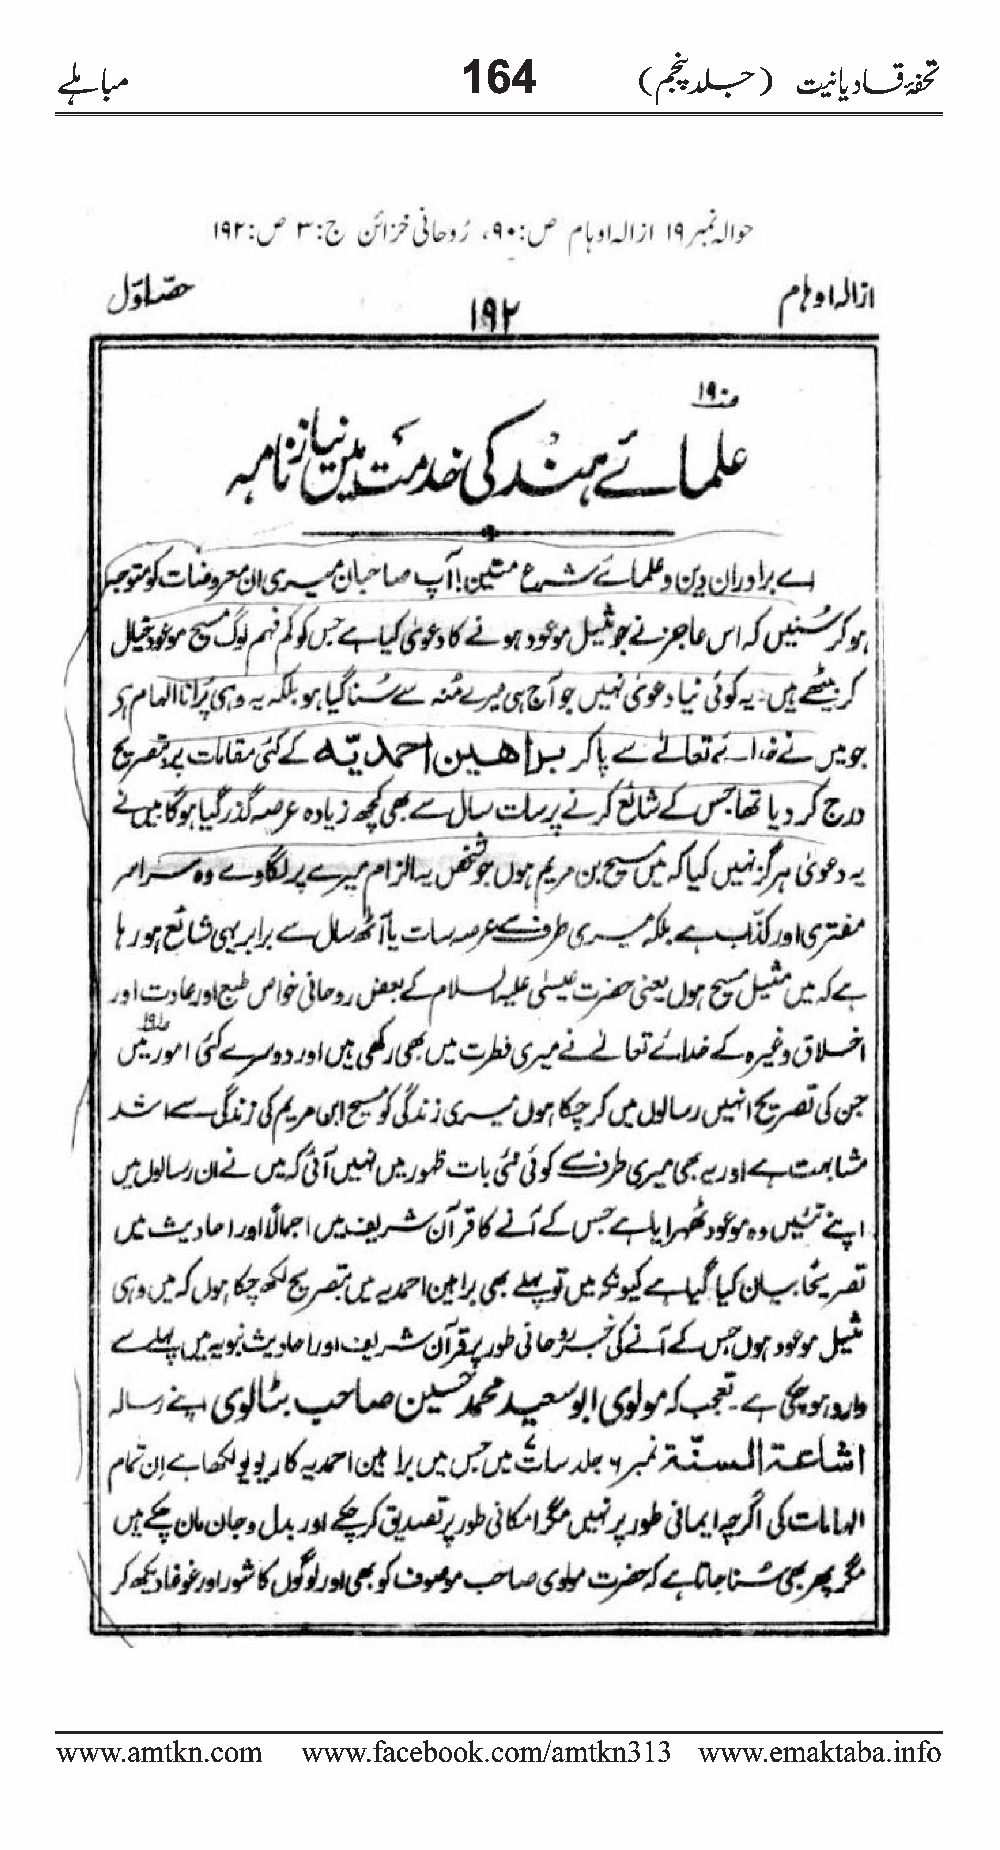 تحفۂ قادیانیت (جلد پنجم) 164 مباہلے
حوالہ نمبر ۱۹ ازالہ اوہام ص:۹۰، رُوحانی خزائن ج:۳ ص:۱۹۲
ازالہ اوہام ۱۹۲ حصّہ اوّل
ص۱۹۰
علمائے ہند کی خدمت میں نیاز نامہ
اے برادران دین و علمائے شرع متین! آپ صاحبان میری ان معروضات کو متوجہ
ہو کر سُنیں کہ اس عاجز نے جو مثیل موعود ہونے کا دعویٰ کیا ہے جس کو کم فہم لوگ مسیح موعود خیال
کر بیٹھے ہیں۔ یہ کوئی نیا دعویٰ نہیں جو آج ہی میرے مُنہ سے سُنا گیا ہو بلکہ یہ وہی پُرانا الہام ہے
جو میں نے خدائے تعالےٰ سے پا کر براہین احمدیّہ کے کئی مقامات پر بتصریح
درج کر دیا تھا جس کے شائع کرنے پر سات سال سے بھی کچھ زیادہ عرصہ گذر گیا ہوگا میں نے
یہ دعویٰ ہرگز نہیں کیا کہ میں مسیح بن مریم ہوں جو شخص یہ الزام میرے پر لگاوے وہ سراسر
مفتری اور کذّاب ہے بلکہ میری طرف سے عرصہ سات یا آٹھ سال سے برابر یہی شائع ہو رہا
ہے کہ میں مثیل مسیح ہوں یعنی حضرت عیسیٰ علیہ السلام کے بعض روحانی خواص طبع اور عادت اور
اخلاق وغیرہ کے خدائے تعالےٰ نے میری فطرت میں بھی رکھی ہیں اور دوسرے کئی امور میں
ص۱۹۱
جن کی تصریح انہیں رسالوں میں کر چکا ہوں میری زندگی کو مسیح ابن مریم کی زندگی سے اشد
مشابہت ہے اور یہ بھی میری طرف سے کوئی نئی بات ظہور میں نہیں آئی کہ میں نے ان رسالوں میں
اپنے تئیں وہ موعود ٹھہرایا ہے جس کے آنے کا قرآن شریف میں اجمالاً اور احادیث میں
تصریحًا بیان کیا گیا ہے کیونکہ میں تو پہلے بھی براہین احمدیہ میں بتصریح لکھ چکا ہوں کہ میں وہی
مثیل موعود ہوں جس کے آنے کی خبر روحانی طور پر قرآن شریف اور احادیث نبویہ میں پہلے سے
وارد ہو چکی ہے۔ تعجب کہ مولوی ابو سعید محمد حسین صاحب بٹالوی اپنے رسالہ
اشاعۃ السنّۃ نمبر ۶ جلد سات میں جس میں براہین احمدیہ کا ریویو لکھا ہے اِن تمام
الہامات کی اگرچہ ایمانی طور پر نہیں مگر امکانی طور پر تصدیق کر چکے اور بدل و جان مان چکے ہیں
مگر پھر بھی سُنا جاتا ہے کہ حضرت مولوی صاحب موصوف کو بھی اور لوگوں کا شور اور غوغا دیکھ کر
www.amtkn.com www.facebook.com/amtkn313 www.emaktaba.info